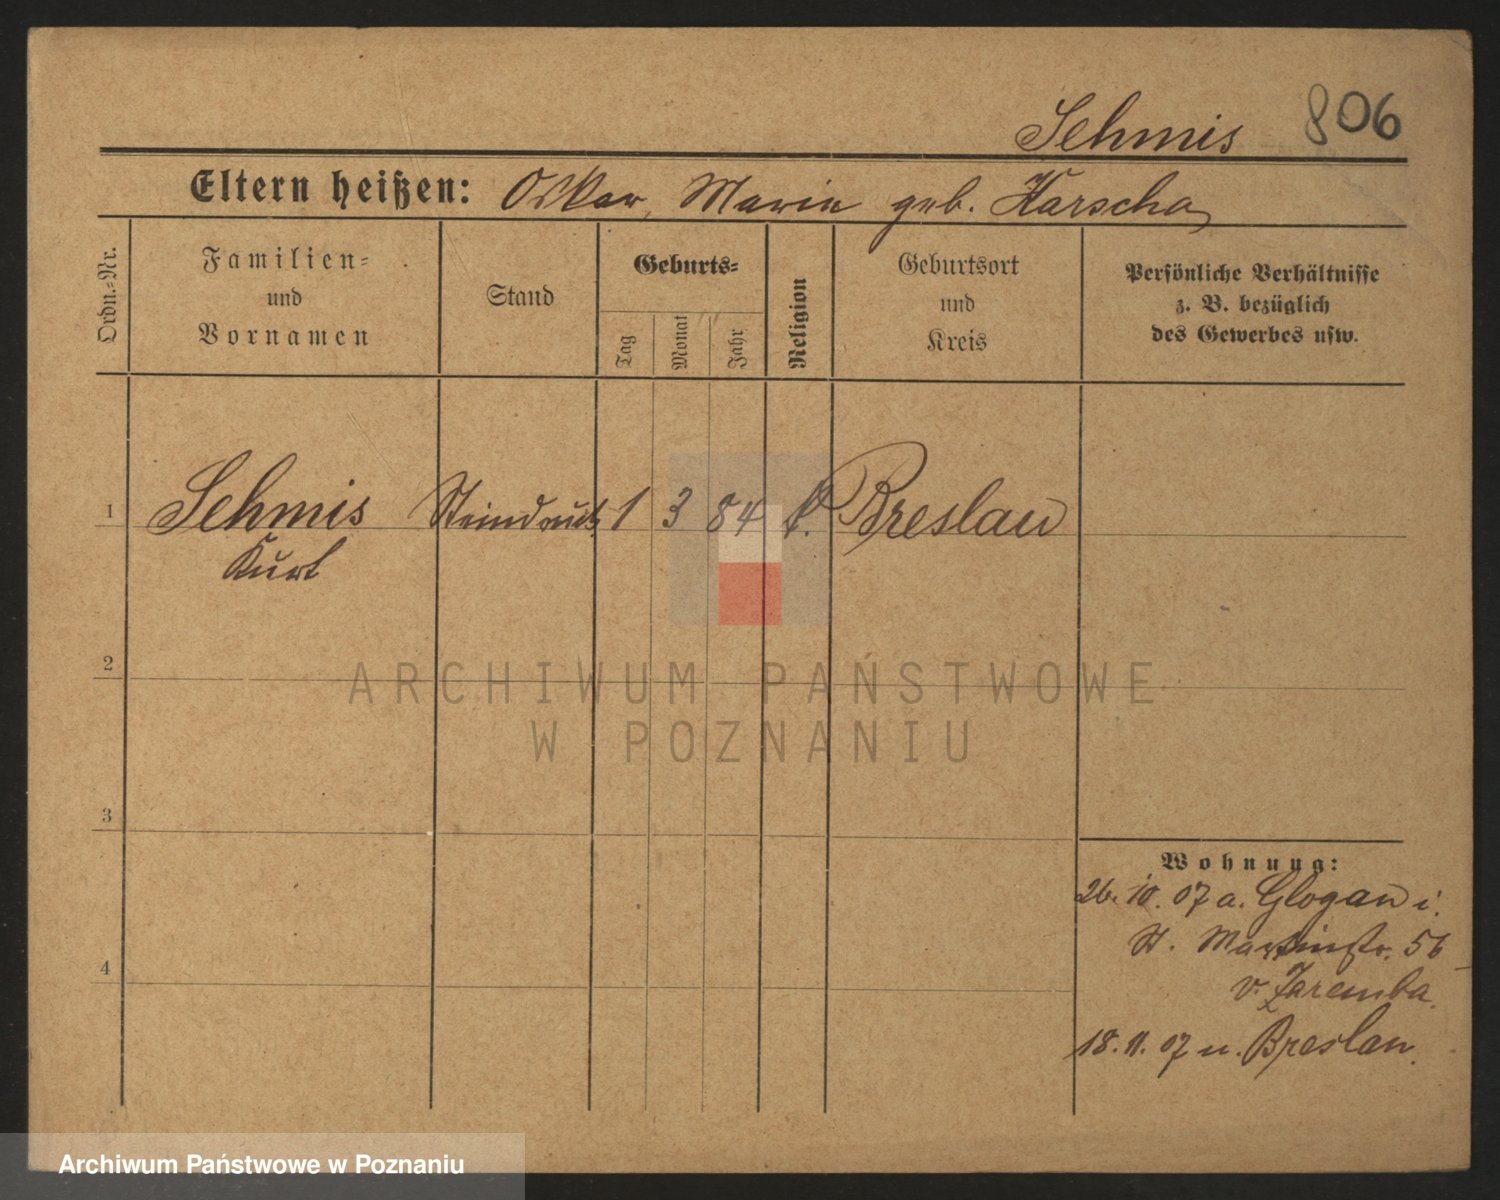 Sehmis 806
Eltern heißen: Oskar, Marie geb. Harscha
Ordn.-Nr.
Familien-
und
Vornamen
Stand
Geburts-
Tag
Monat
Jahr
Religion
Geburtsort
und
Kreis
Persönliche Verhältnisse
z. B. bezüglich
des Gewerbes usw.
1 Sehmis Steindruck. 1 3 84 k. Breslau
Kurt
2
3
4
Wohnung:
26. 10. 07 a. Glogau i.
St. Martinstr. 56
v. Zaremba.
18. 11. 07 n. Breslau.
ARCHIWUM PAŃSTWOWE
W POZNANIU
Archiwum Państwowe w Poznaniu